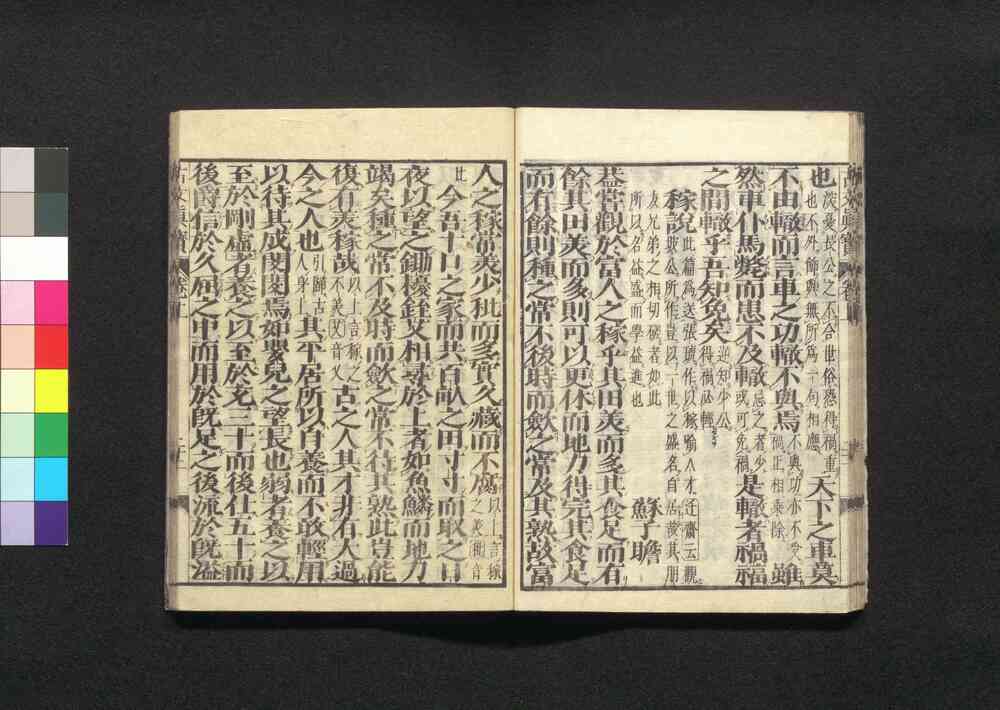 也淡憂長公之不合世俗恐得禍重
也不外飾與無所爲一句相應天下之車莫
不由轍而言車之功轍不與焉不與功亦不受
禍正相乘除雖
然車仆馬斃而患不及轍忌之者少
或可免禍是轍者禍福
之間轍乎吾知免矣逆知少公
得禍必輕
稼說此篇爲送張琥作以稼喻人才迂齋云觀
坡公所作豈以一世之盛名自居哉其朋
友兄弟之相切磋者如此
所以名益盛而學益進也
蘇子瞻
葢嘗觀於富人之稼乎其田美而多其食足而有
餘其田美而多則可以更休而地力得完其食足
而有餘則種之常不後時而歛之常及其熟故富
人之稼常美少秕而多實久藏而不腐以上言稼
之美秕音
比
今吾十口之家而共百畝之田寸寸而取之日
夜以望之鋤耰銍艾相尋於上者如魚鱗而地力
竭矣種之常不及時而歛之常不待其熟此豈能
復有美稼哉以上言稼之
不美艾音乂古之人其才非有大過
今之人也引歸古
人身上其平居所以自養而不敢輕用
以待其成閔閔焉如嬰兒之望長也弱者養之以
至於剛虛者養之以至於充三十而後仕五十而
後爵信於久屈之中而用於旣足之後流於旣溢